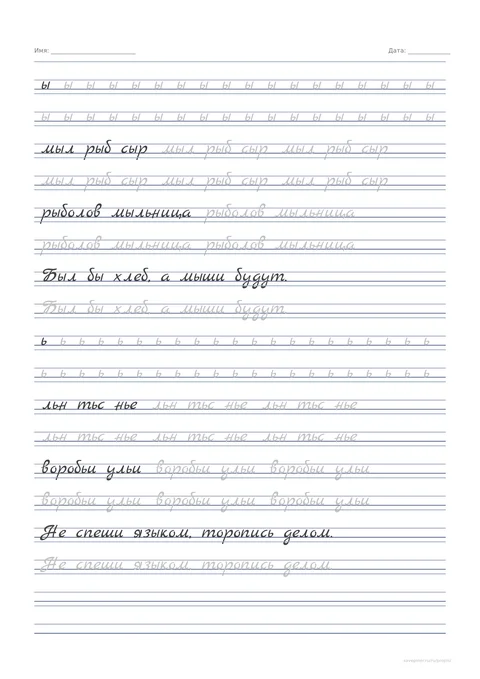 Имя: Дата:
ы ы ы ы ы ы ы ы ы ы ы ы ы ы ы ы ы ы
ы ы ы ы ы ы ы ы ы ы ы ы ы ы ы ы ы ы
мыл рыб сыр мыл рыб сыр мыл рыб сыр
мыл рыб сыр мыл рыб сыр мыл рыб сыр
рыболов мыльница рыболов мыльница
рыболов мыльница рыболов мыльница
Был бы хлеб, а мыши будут.
Был бы хлеб а мыши будут
ь ь ь ь ь ь ь ь ь ь ь ь ь ь ь ь ь ь ь ь ь
ь ь ь ь ь ь ь ь ь ь ь ь ь ь ь ь ь ь ь ь ь
льн тьс нье льн тьс нье льн тьс нье
льн тьс нье льн тьс нье льн тьс нье
воробьи ульи воробьи ульи воробьи ульи
воробьи ульи воробьи ульи воробьи ульи
Не спеши языком, торопись делом.
Не спеши языком торопись делом